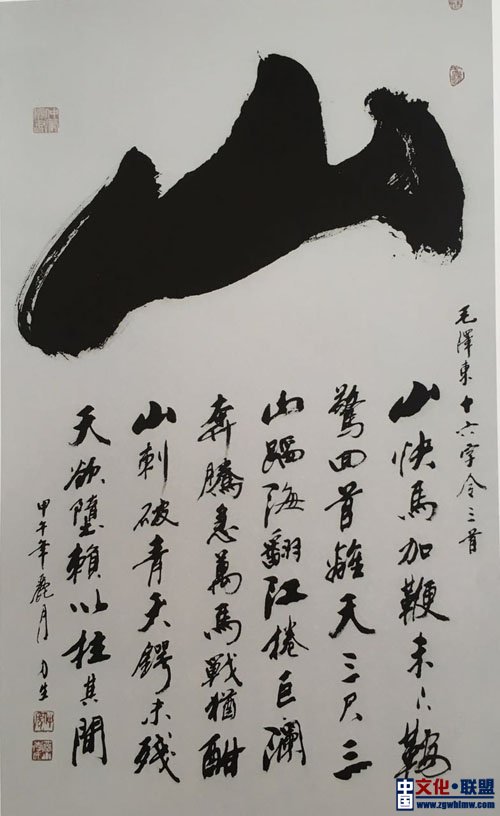 山
毛澤東十六字令三首
山快馬加鞭未下鞍
驚回首離天三尺三
山蹈海翻江捲巨瀾
奔騰急萬馬戰猶酣
山刺破青天鍔未殘
天欲墮賴以拄其間
甲午年麗月 力生
中国文化·联盟
www.zgwhlmw.com